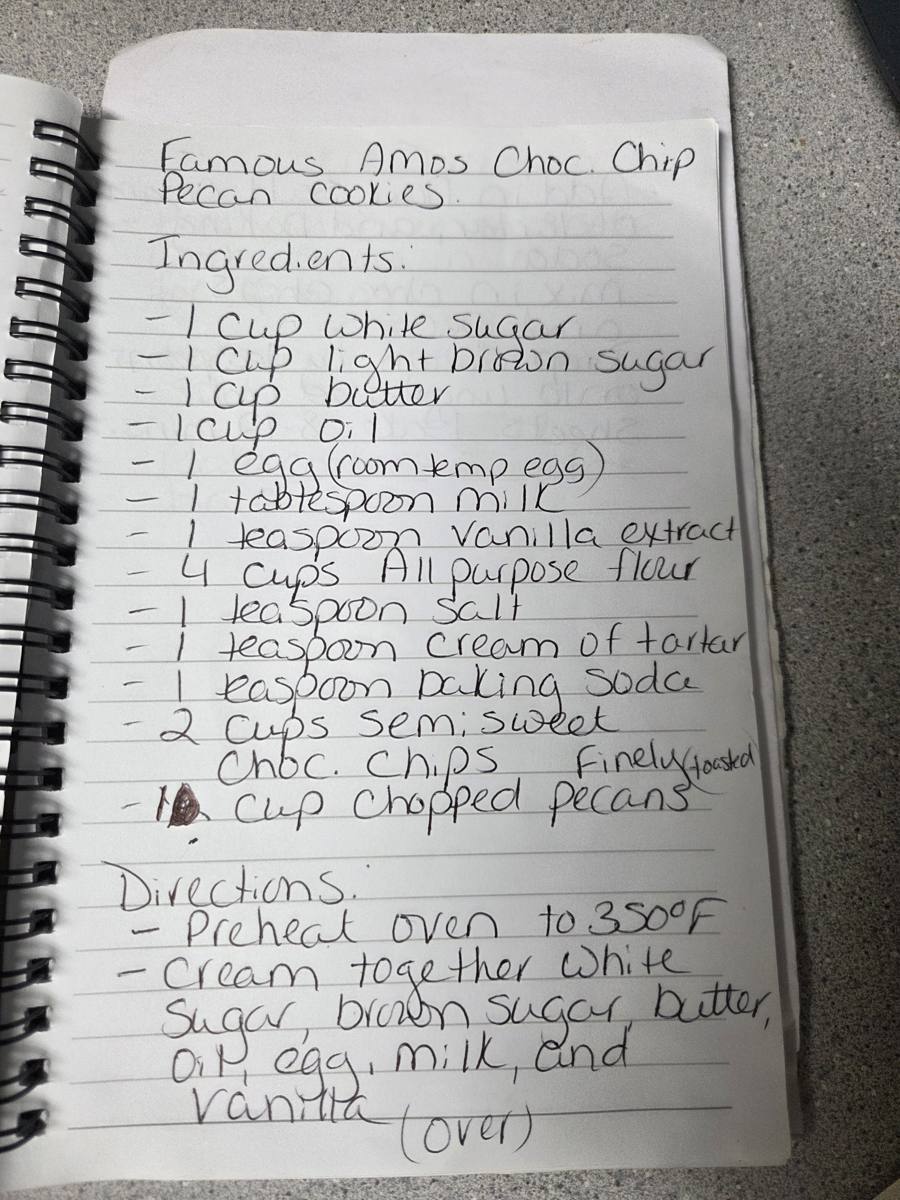 Famous Amos Choc. Chip
Pecan cookies.
Ingredients:
- 1 cup white sugar
- 1 cup light brown sugar
- 1 cup butter
- 1 cup oil
- 1 egg (room temp egg)
- 1 tablespoon milk
- 1 teaspoon vanilla extract
- 4 cups All purpose flour
- 1 teaspoon salt
- 1 teaspoon cream of tartar
- 1 teaspoon baking soda
- 2 cups semi sweet
Choc. chips Finely toasted
- 1 cup chopped pecans
Directions:
- Preheat oven to 350°F
- Cream together white
sugar, brown sugar, butter,
oil, egg, milk, and
vanilla
(over)